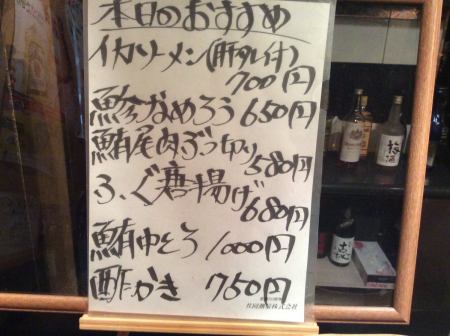 本日のおすすめ
イカソーメン(肝タレ付)
700円
鯵なめろう 650円
鮪尾肉ぶつ切り
580円
ふぐ唐揚げ
680円
鮪中とろ 1000円
酢がき 750円
梅酒